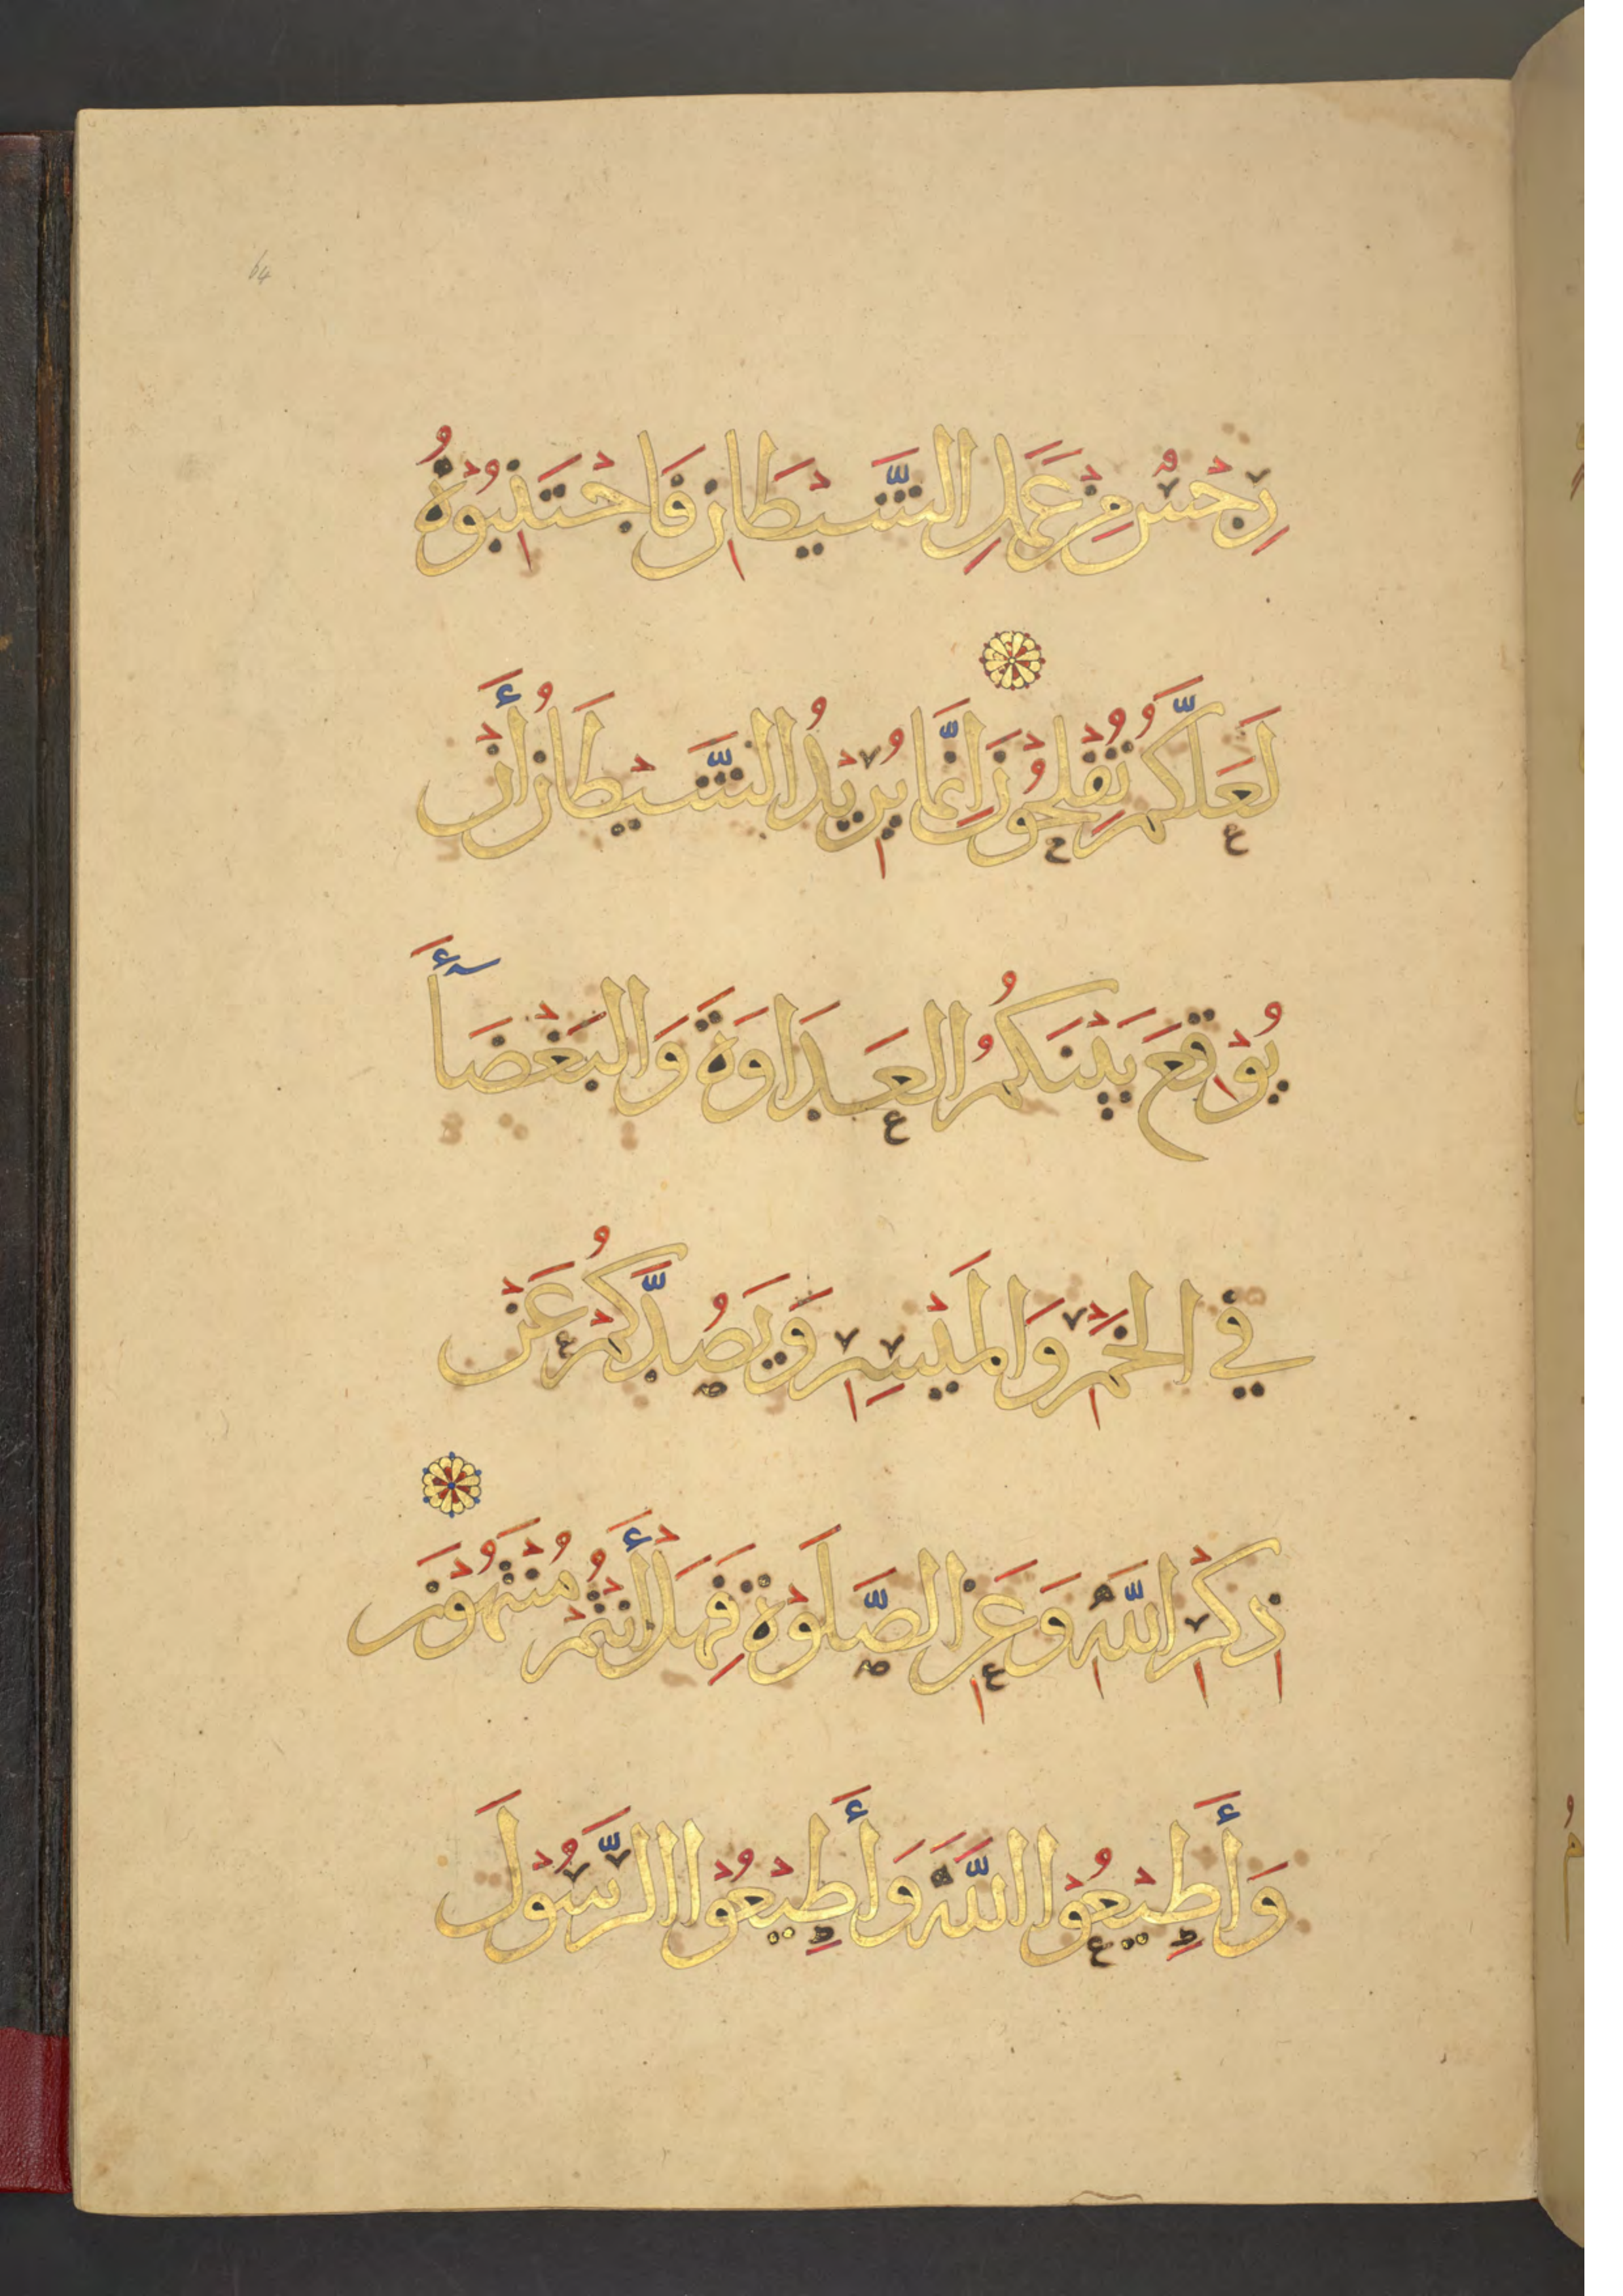 64
رِجْسٌ مِنْ عَمَلِ الشَّيْطَانِ فَاجْتَنِبُوْهُ
لَعَلَّكُمْ تُفْلِحُوْنَ إِنَّمَا يُرِيْدُ الشَّيْطَانُ أَنْ
يُوْقِعَ بَيْنَكُمُ العَدَاوَةَ وَالبَغْضَآأَ
فِي الخَمْرِ وَالمَيْسِرِ وَيَصُدَّكُمْ عَنْ
ذِكْرِ اللَّهِ وَعَنِ الصَّلَوٰةِ فَهَلْ أَنْتُمْ مُنْتَهُوْنَ
وَأَطِيْعُوْا اللَّهَ وَأَطِيْعُوْا الرَّسُوْلَ